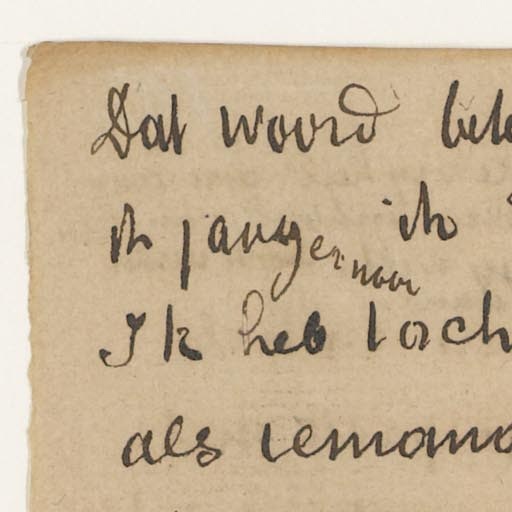 Dat woord bete
ik jang er voor ik
Ik heb toch
als iemand